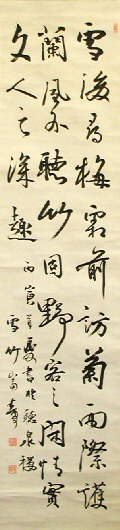 雪後尋梅霜前訪菊雨際護
蘭風外聽竹固野客之閒情實
文人之深趣
丙寅首夏書於聽泉樓
雪竹